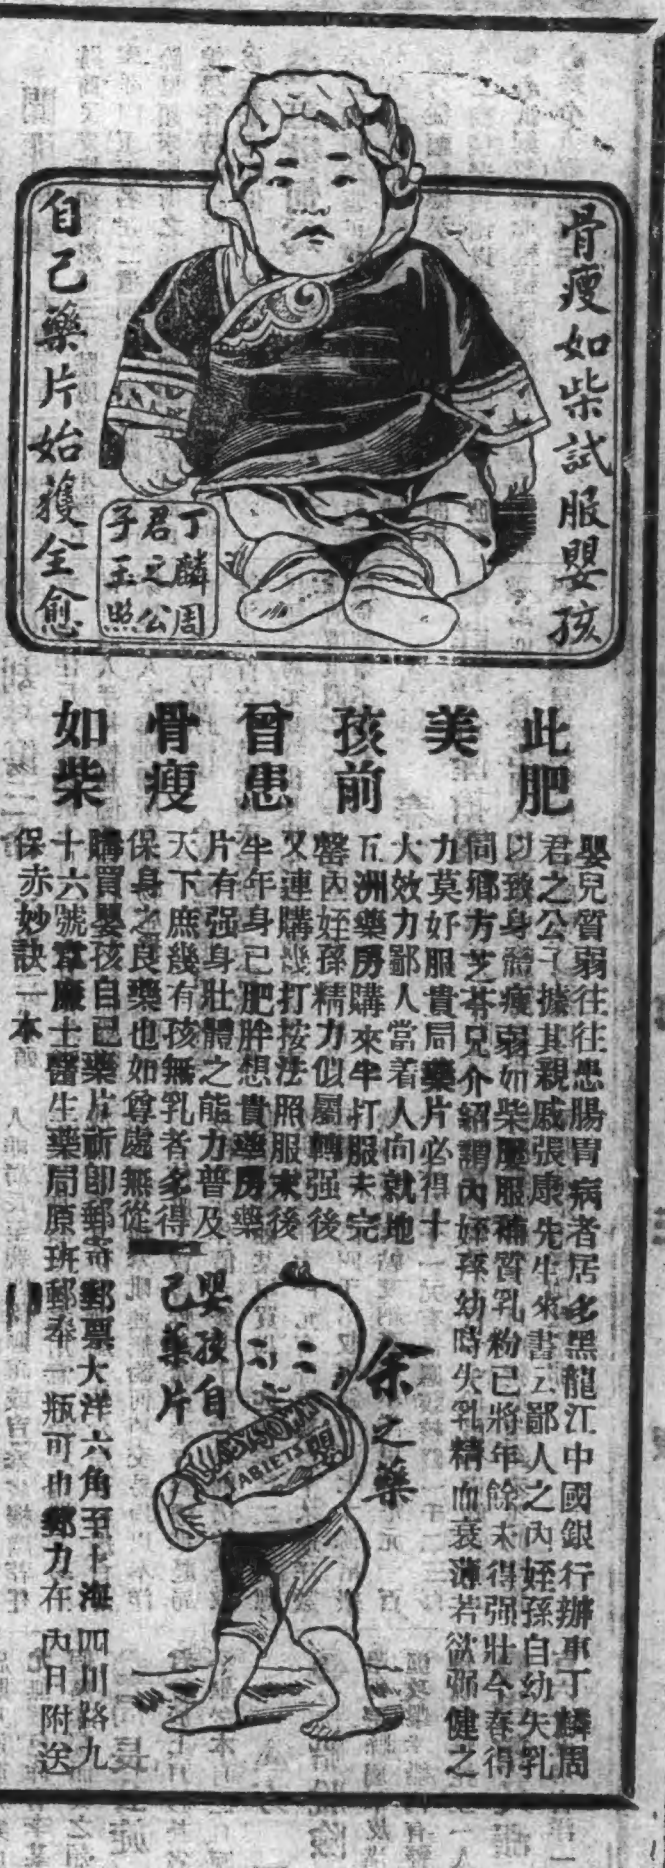 骨瘦如柴試服嬰孩
自己藥片始獲全愈
丁麟周
君之公
子玉照
此肥
美
孩前
曾患
骨瘦
如柴
嬰兒質弱往往患腸胃病者居多黑龍江中國銀行辦事丁麟周
君之公子據其親戚張康先生來書云鄙人之內姪孫自幼失乳
以致身體瘦弱如柴屢服補質乳粉已將年餘未得强壯今春得
同鄉方芝荅兄介紹謂內姪孫幼時失乳精血衰薄若欲强健之
力莫好服貴局藥片必得十
大效力鄙人當着人向就地
五洲藥房購來半打服未完
罄內姪孫精力似屬轉强後
又連購幾打按法照服末後
半年身已肥胖想貴藥房藥
片有强身壯體之能力普及
天下庶幾有孩無乳者多得
保身之良藥也如尊處無從
購買嬰孩自己藥片祈卽郵寄郵票大洋六角至上海四川路九
十六號韋廉士醫生藥局原班郵奉一瓶可也郵力在內日附送
保赤妙訣一本
余之藥
嬰孩自
己藥片
TABLETS